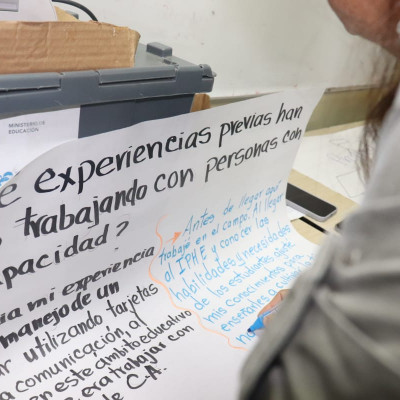 MINISTERIO DE
EDUCACIÓN
e experiencias previas han
trabajando con personas con
apacidad?
mi experiencia
manejo de un
r utilizando tarjetas
a comunicación, al
en este ambito educativo
era trabajar con
de C.A.
Antes de llegar aquí
trabajé en el campo. Al llegar
al IPHE y conocer las
habilidades y necesidades
de los estudiantes siete
mis conocimientos
enseñarles a